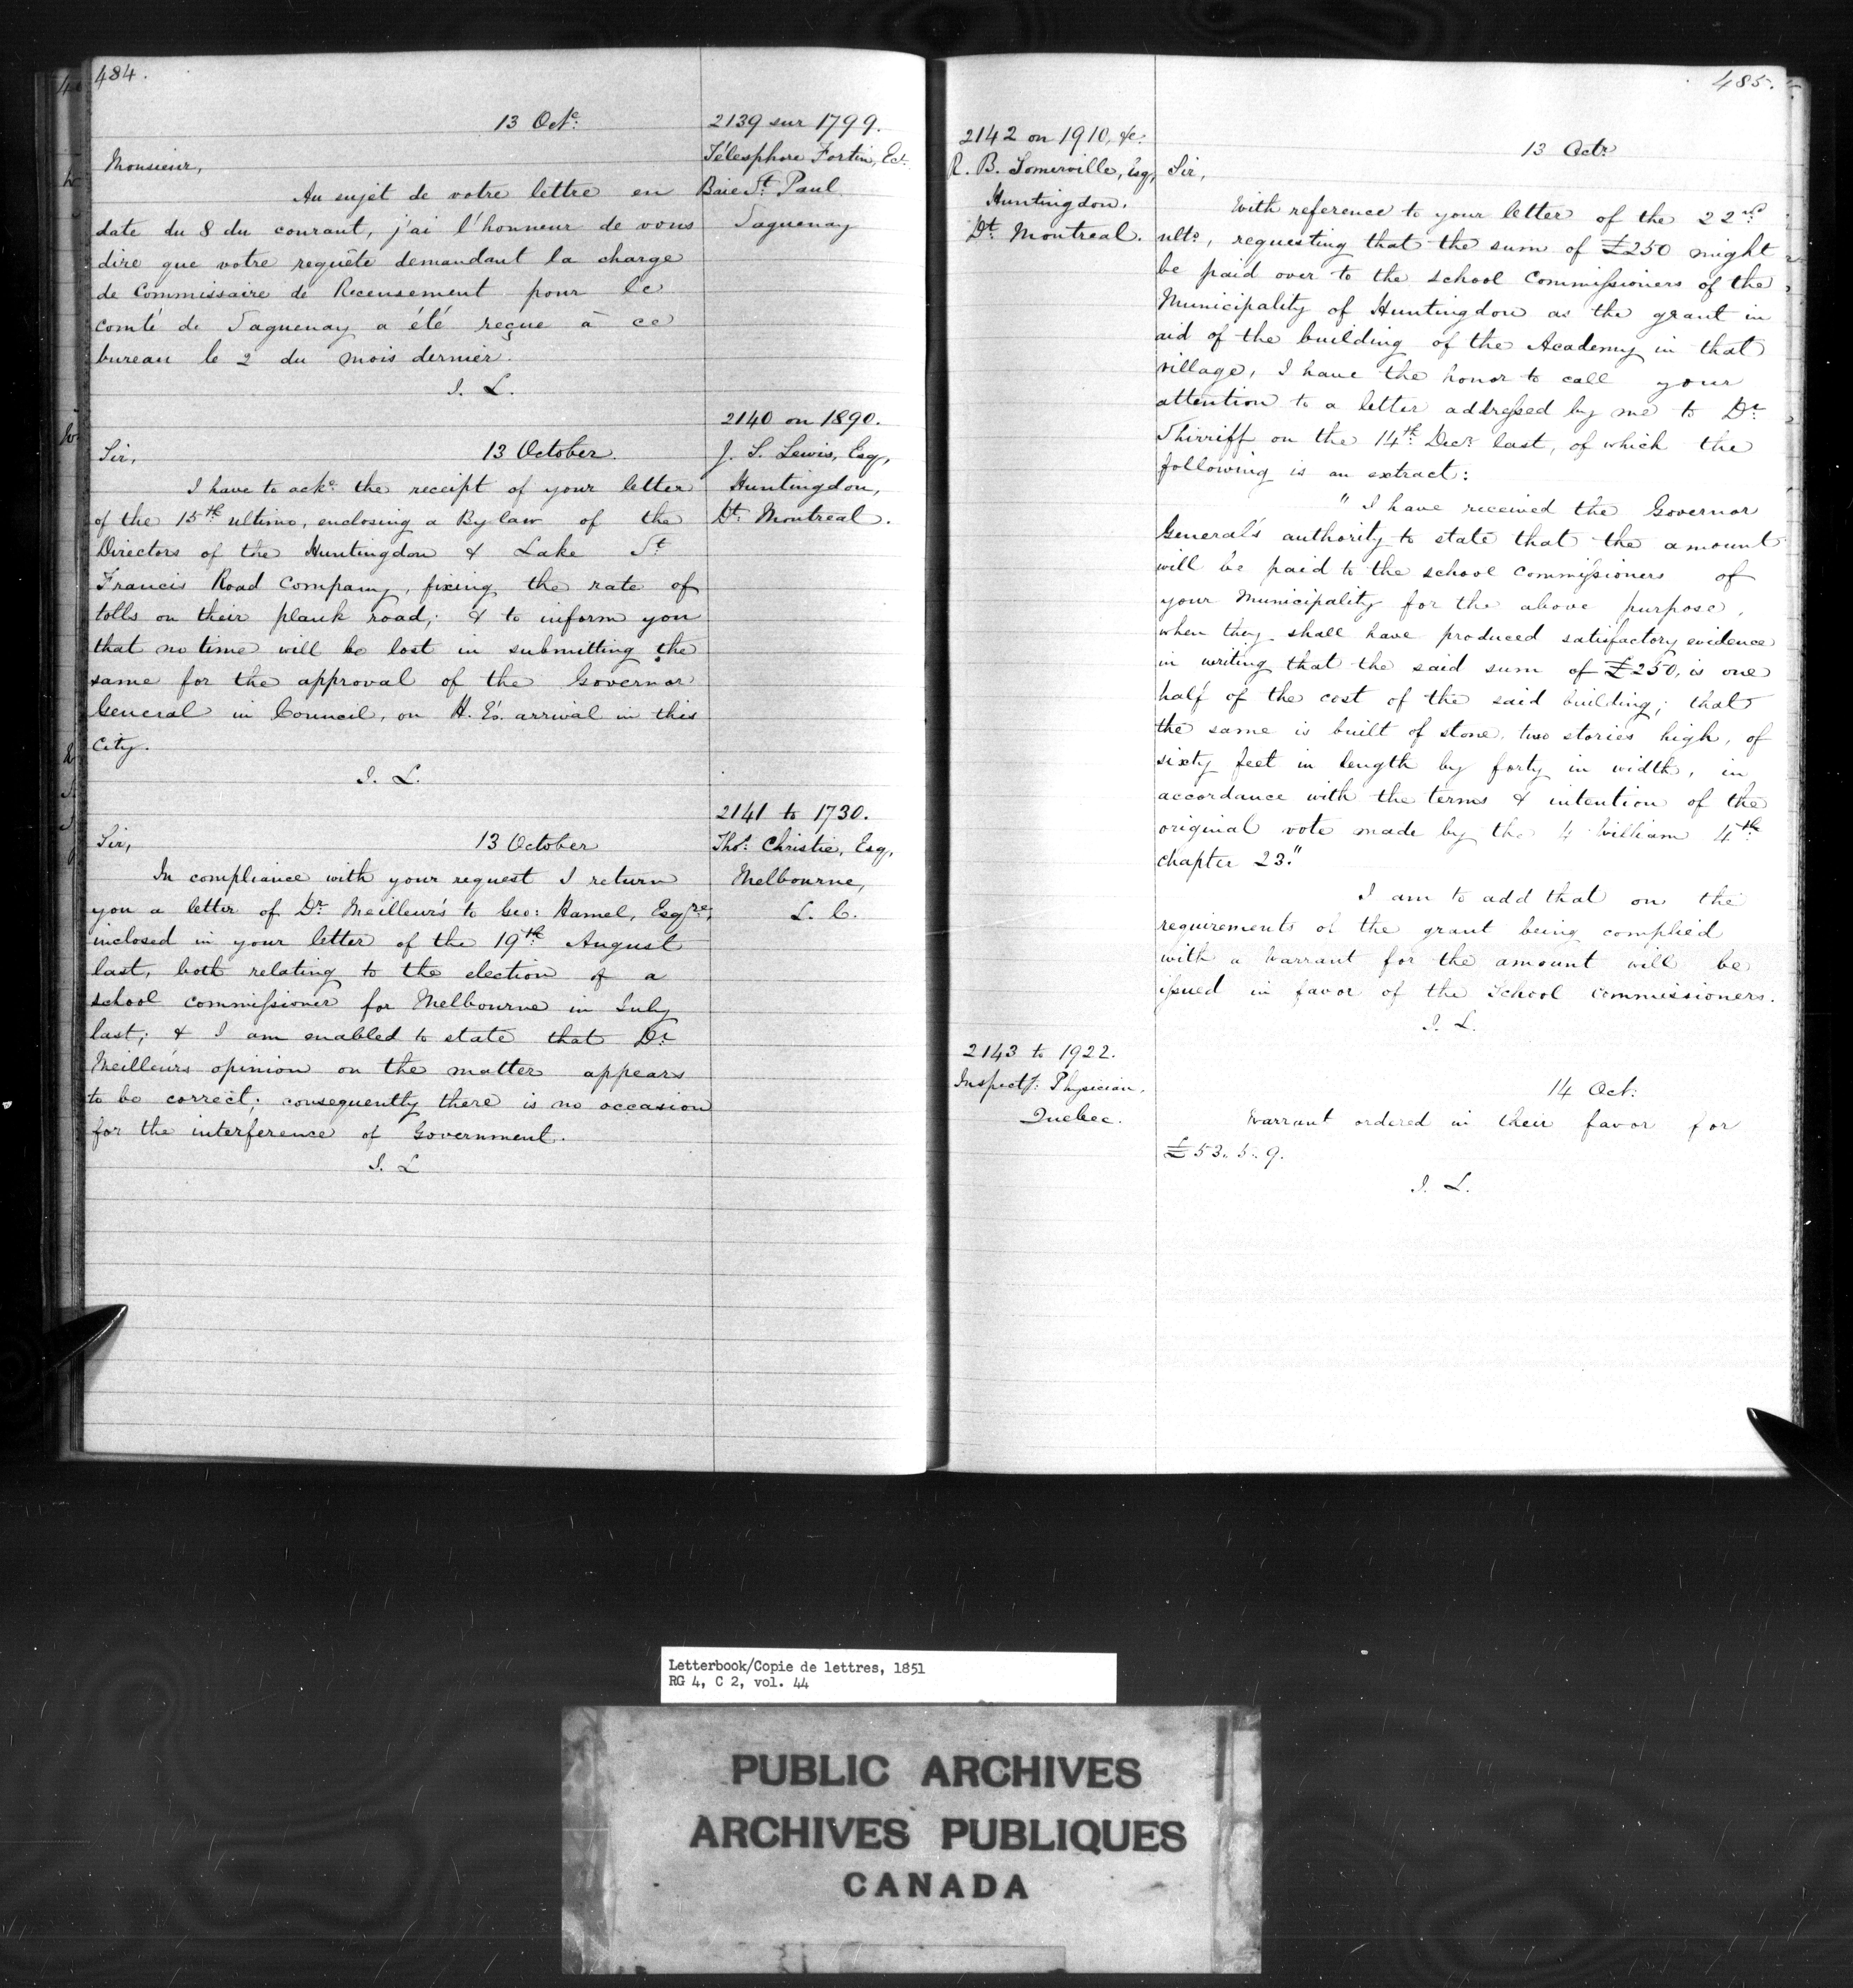 484.
13 Octe.
2139 sur 1799.
Télesphore Fortin, Ec.
Baie St. Paul
Saguenay
Monsieur,
Au sujet de votre lettre en
date du 8 du courant, j'ai l'honneur de vous
dire que votre requête demandant la charge
de Commissaire de Recensement pour le
comté de Saguenay a été reçue à ce
bureau le 2 du mois dernier.
I. L.
2140 on 1890.
J. S. Lewis, Esq,
Huntingdon,
Dt. Montreal.
Sir, 13 October.
I have to acke. the receipt of your letter
of the 15th ultimo, enclosing a By law of the
Directors of the Huntingdon & Lake St.
Francis Road Company, fixing the rate of
tolls on their plank road; & to inform you
that no time will be lost in submitting the
same for the approval of the Governor
General in Council, on H. E's. arrival in this
City.
I. L.
2141 to 1730.
Thos. Christie, Esq,
Melbourne,
L. C.
Sir, 13 October
In compliance with your request I return
you a letter of Dr. Meilleur's to Geo: Hamel, Esqre,
inclosed in your letter of the 19th August
last, both relating to the election of a
school commissioner for Melbourne in July
last; & I am enabled to state that Dr.
Meilleur's opinion on the matter appears
to be correct; consequently there is no occasion
for the interference of Government.
I. L
485.
2142 on 1910, &c.
R. B. Somerville, Esq,
Huntingdon.
Dt. Montreal.
13 Octr.
Sir,
With reference to your letter of the 22nd
ulto, requesting that the sum of £250 might
be paid over to the school Commissioners of the
Municipality of Huntingdon as the grant in
aid of the building of the Academy in that
village, I have the honor to call your
attention to a letter addressed by me to Dr.
Shirriff on the 14th Decr last, of which the
following is an extract:
"I have received the Governor
General's authority to state that the amount
will be paid to the school commissioners of
your Municipality for the above purpose,
when they shall have produced satisfactory evidence
in writing that the said sum of £250, is one
half of the cost of the said building; that
the same is built of stone, two stories high, of
sixty feet in length by forty in width, in
accordance with the terms & intention of the
original vote made by the 4 William 4th
chapter 23."
I am to add that on the
requirements of the grant being complied
with a Warrant for the amount will be
issued in favor of the School commissioners.
I. L.
2143 to 1922.
Inspectg: Physician.
Quebec.
14 Oct:
Warrant ordered in their favor for
£53. 5. 9.
I. L.
Letterbook/Copie de lettres, 1851
RG 4, C 2, vol. 44
PUBLIC ARCHIVES
ARCHIVES PUBLIQUES
CANADA